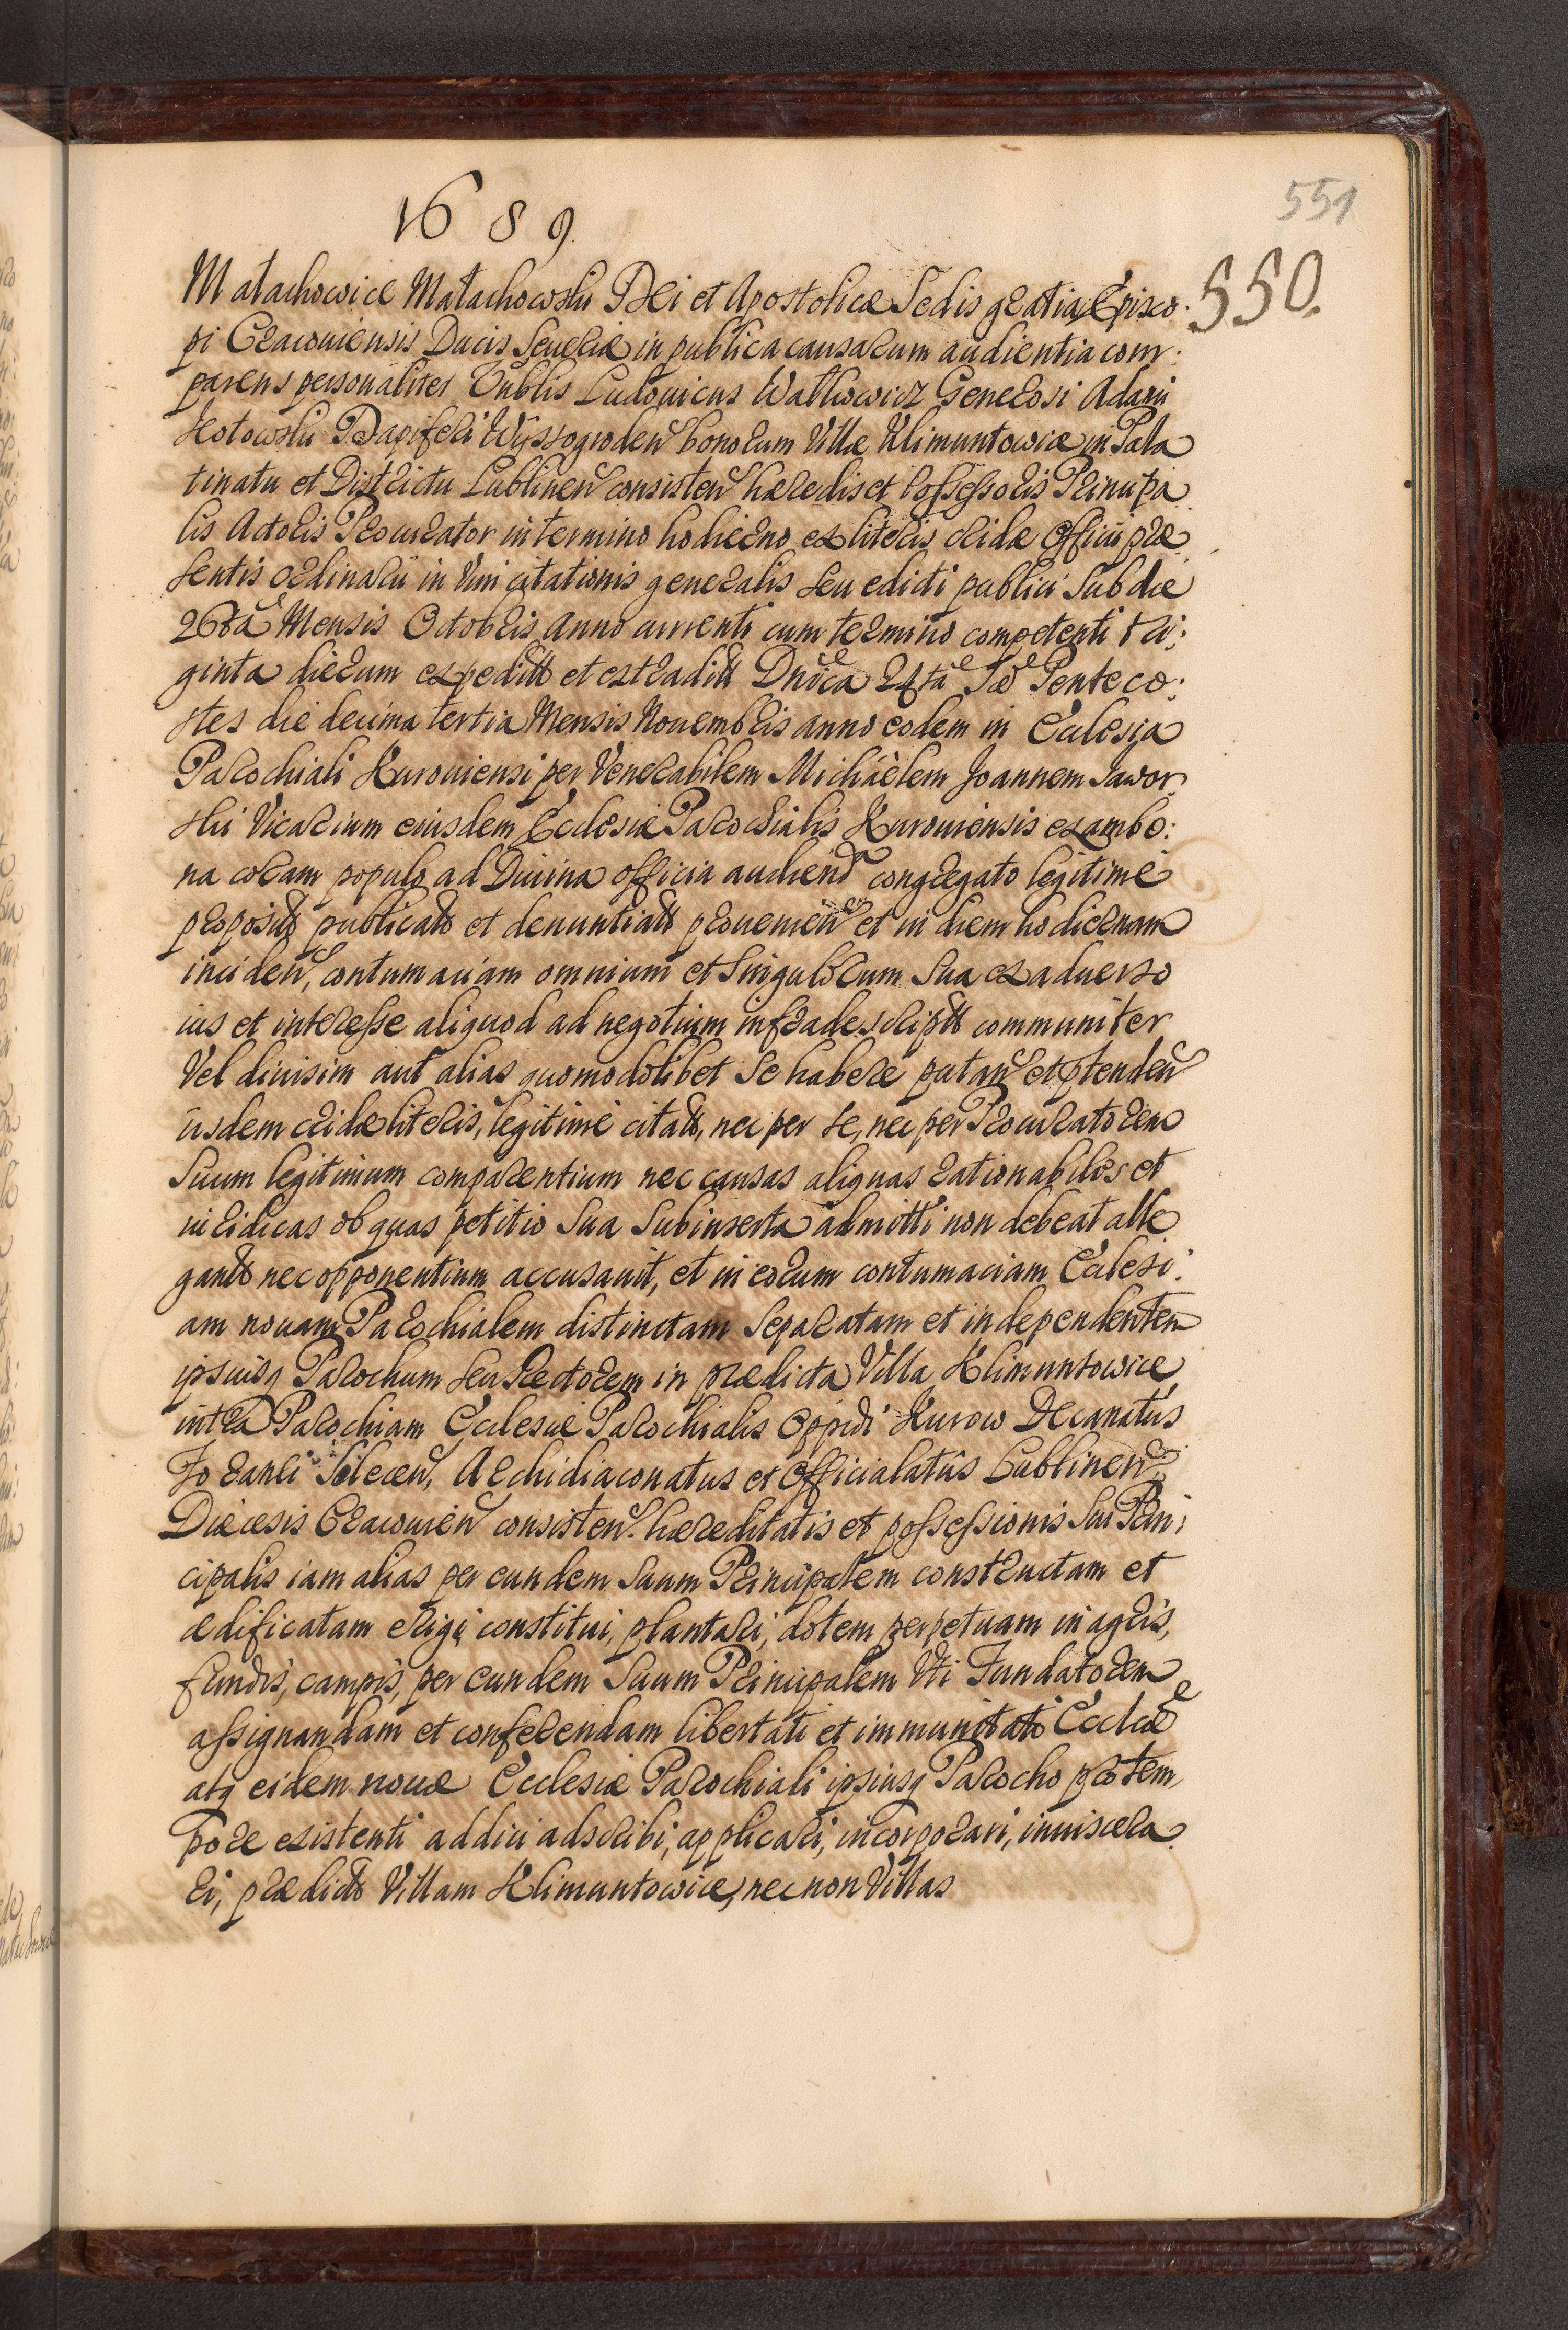 1689
551
550.
Małachowice Małachowski Dei et Apostolicæ Sedis gratia Episco:
pi Cracouiensis Ducis Seueriæ in publica causarum audientia com:
parens personaliter Ludouicus Watkowicz Generosi Adami
Kotowski Dapiferi Wyssogroden bonorum Villæ Klimuntowice in Pala
tinatu et Districtu Lublinen consisten hæredis et Possessoris Principa
lis Actoris Procurator in termino hodierno ex literis cridæ Officii præ
sentis ordinarii in Vim citationis generalis seu edicti publici Sub die
26ta Mensis Octobris anno currenti cum termino competenti tri:
ginta dierum expeditt et extraditt Dnica 24ta Penteco:
stes die decima tertia Mensis Nouembris anno eodem in Ecclesia
Parochiali Kurouiensi per Venerabilem Michaëlem Joannem Jawor
ski Vicarium eiusdem Ecclesiæ Parochialis Kurouiensis ex ambo:
na coram populo ad Diuina officia audiend congregato legitime
proposit publicat et denuntiatt prouenien et in diem hodiernam
inciden, contumaciam omnium et Singulorum Sua ex aduerso
ius et interesse aliquod ad negotium infradescriptt communiter
Vel diuisim aut alias quomodolibet Se habere putan et ptenden
iisdem cridæ literis, legitime citatt, nec per se, nec per Procuratorem
Suum legitimum comparentium nec causas aliquas rationabiles et
iuridicas ob quas petitio Sua Subinserta admitti non debeat alle
gantt nec opponentium accusauit, et in eorum contumaciam Eclesi:
am nouam Parochialem distinctam Separatam et independentem
ipsiusq Parochum seu Rectorem in prædicta Villa Klimuntowice
intra Parochiam Ecclesiæ Parochialis Oppidi Kurow Decanatus
Foranei Solecen, Archidiaconatus et Officialatûs Lublinen
Diæcesis Cracouien consisten. hæreditatis et possessionis Sui Prin:
cipalis iam alias per eundem Suum Principalem constructam et
ædificatam erigi constitui, plantari, dotem perpetuam in agris,
fundis, campis, per eundem Suum Principalem Vti Fundatorem
assignandam et conferendam libertati et immunitati Eccliæ
atq eidem nouæ Ecclesiæ Parochiali ipsiusq Parocho pro tem
pore existenti addici adscribi, applicari, incorporari, inuiscera
ri, prædictt Villam Klimuntowice, nec non Villas